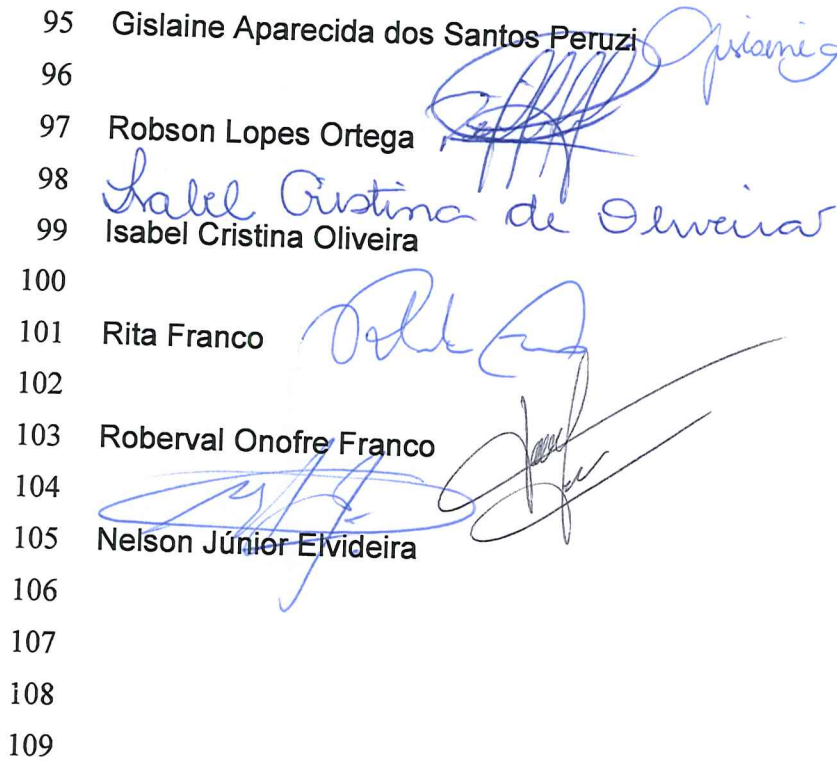 95 Gislaine Aparecida dos Santos Peruzi
96
97 Robson Lopes Ortega
98 Isabel Cristina de Oliveira
99 Isabel Cristina Oliveira
100
101 Rita Franco
102
103 Roberval Onofre Franco
104
105 Nelson Júnior Elvideira
106
107
108
109